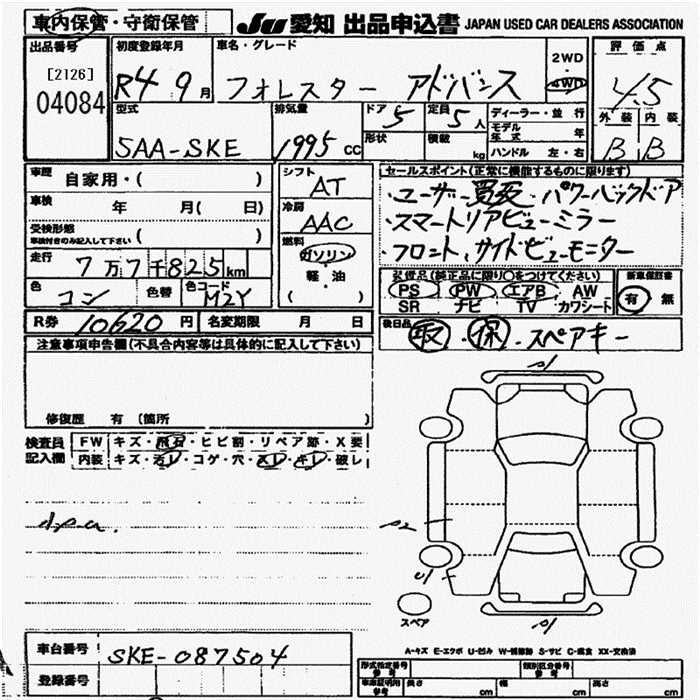 車内保管・守衛保管 JU 愛知 出品申込書 JAPAN USED CAR DEALERS ASSOCIATION
出品番号 [2126] 04084
初度登録年月 R4 9月
車名・グレード フォレスター アドバンス
2WD 4WD
評価点 4.5
外装 内装 B B
型式 5AA-SKE
排気量 1995 cc
ドア 5 形状
定員 5人 積載 kg
ディーラー・並行
モデル年式
ハンドル 左・右
車歴 自家用・( )
車検 年 月( 日)
受検形態 車検付きのみ記入して下さい ( )
走行 7万7千825km
色 コン 色替 色コード M2Y
シフト AT
冷房 AAC
燃料 ガソリン 軽・油 ( )
セールスポイント(正常に機能するものに限ります)
・ユーザー買取・パワーバックドア
・スマートリアビューミラー
・フロント、サイドビューモニター
装備品(純正品に限り○をつけてください) 新車保証書
PS PW エアB AW 有 無
SR ナビ TV カワシート
R券 10620円 名変期限 月 日
後日品 取・保・スペアキー
注意事項申告欄(不具合内容等は具体的に記入して下さい)
修復歴 有 (箇所 )
検査員記入欄 FW キズ・飛石・ヒビ割・リペア跡・X要
内装 キズ・汚レ・コゲ・穴・スレ・キレ・破レ
A1
A2
U1
A1
スペア
A-キズ E-エクボ U-凹み W-補修跡 S-サビ C-腐食 XX-交換済
車台番号 SKE-087504
登録番号
形式指定番号 参考 類別区分番号 参考
車庫証明用 参考 長さ cm 幅 cm 高さ cm